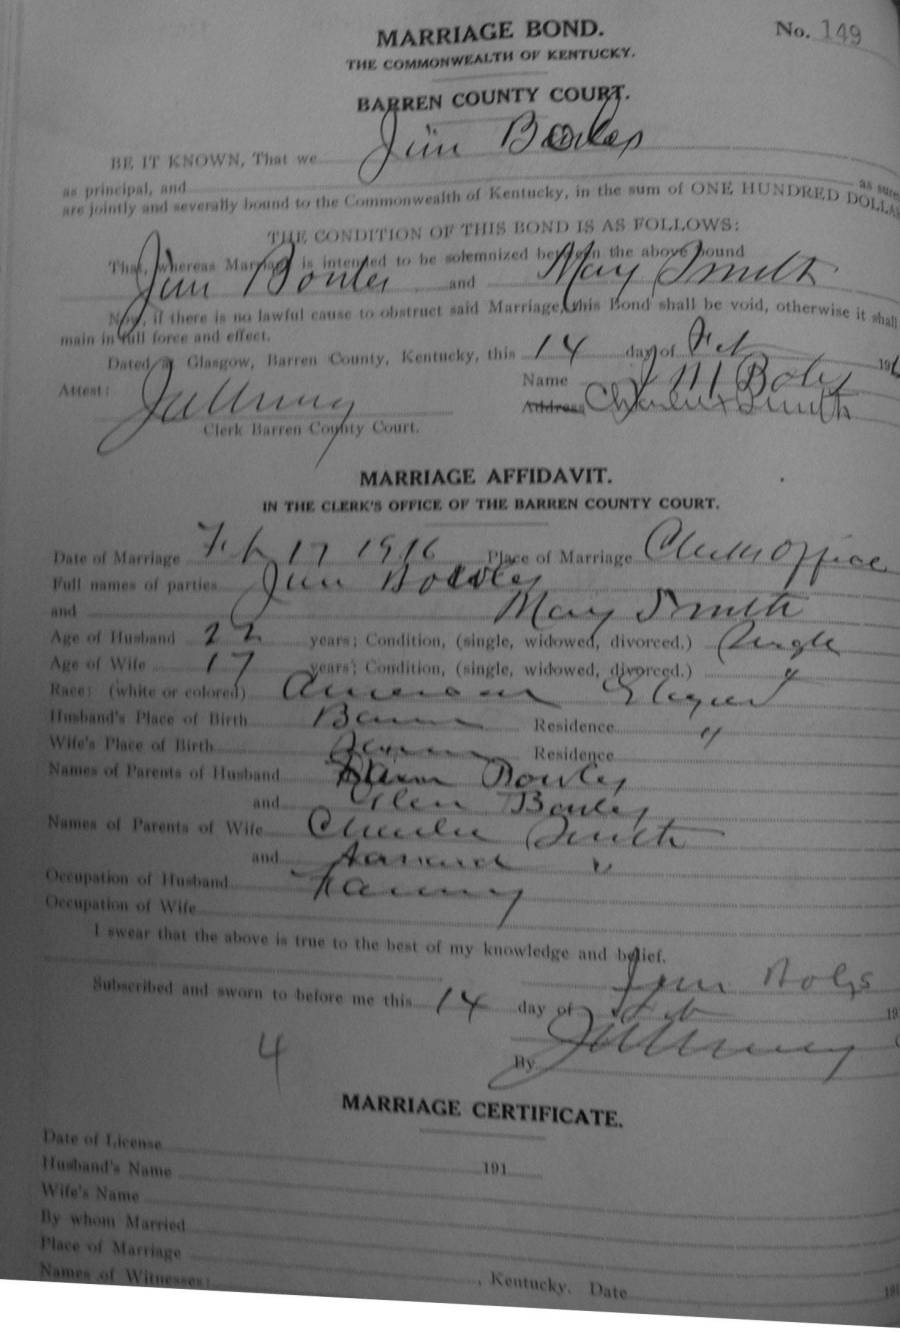 MARRIAGE BOND. No. 149
THE COMMONWEALTH OF KENTUCKY.
BARREN COUNTY COURT.
BE IT KNOWN, That we Jim Bowles
as principal, and as sure
are jointly and severally bound to the Commonwealth of Kentucky, in the sum of ONE HUNDRED DOLLA
THE CONDITION OF THIS BOND IS AS FOLLOWS:
That, whereas Marriage is intended to be solemnized between the above bound
Jim Bowles and May Smith
Now, if there is no lawful cause to obstruct said Marriage, this Bond shall be void, otherwise it shall
main in full force and effect.
Dated at Glasgow, Barren County, Kentucky, this 14 day of Feb 191
Attest: Name J M Boles
Address Charley Smith
Clerk Barren County Court.
MARRIAGE AFFIDAVIT.
IN THE CLERK'S OFFICE OF THE BARREN COUNTY COURT.
Date of Marriage Feb 17 1916 Place of Marriage Clerks Office
Full names of parties Jim Bowles
and May Smith
Age of Husband 22 years; Condition, (single, widowed, divorced.) Single
Age of Wife 17 years; Condition, (single, widowed, divorced.) "
Race: (white or colored)
Husband's Place of Birth Barren Residence "
Wife's Place of Birth Barren Residence
Names of Parents of Husband Bowles
and Ellen Bowles
Names of Parents of Wife Charlie Smith
and "
Occupation of Husband Farming
Occupation of Wife
I swear that the above is true to the best of my knowledge and belief.
Jim Boles
Subscribed and sworn to before me this 14 day of Feb 19
By
4
MARRIAGE CERTIFICATE.
Date of License 191
Husband's Name
Wife's Name
By whom Married
Place of Marriage , Kentucky. Date 191
Names of Witnesses: